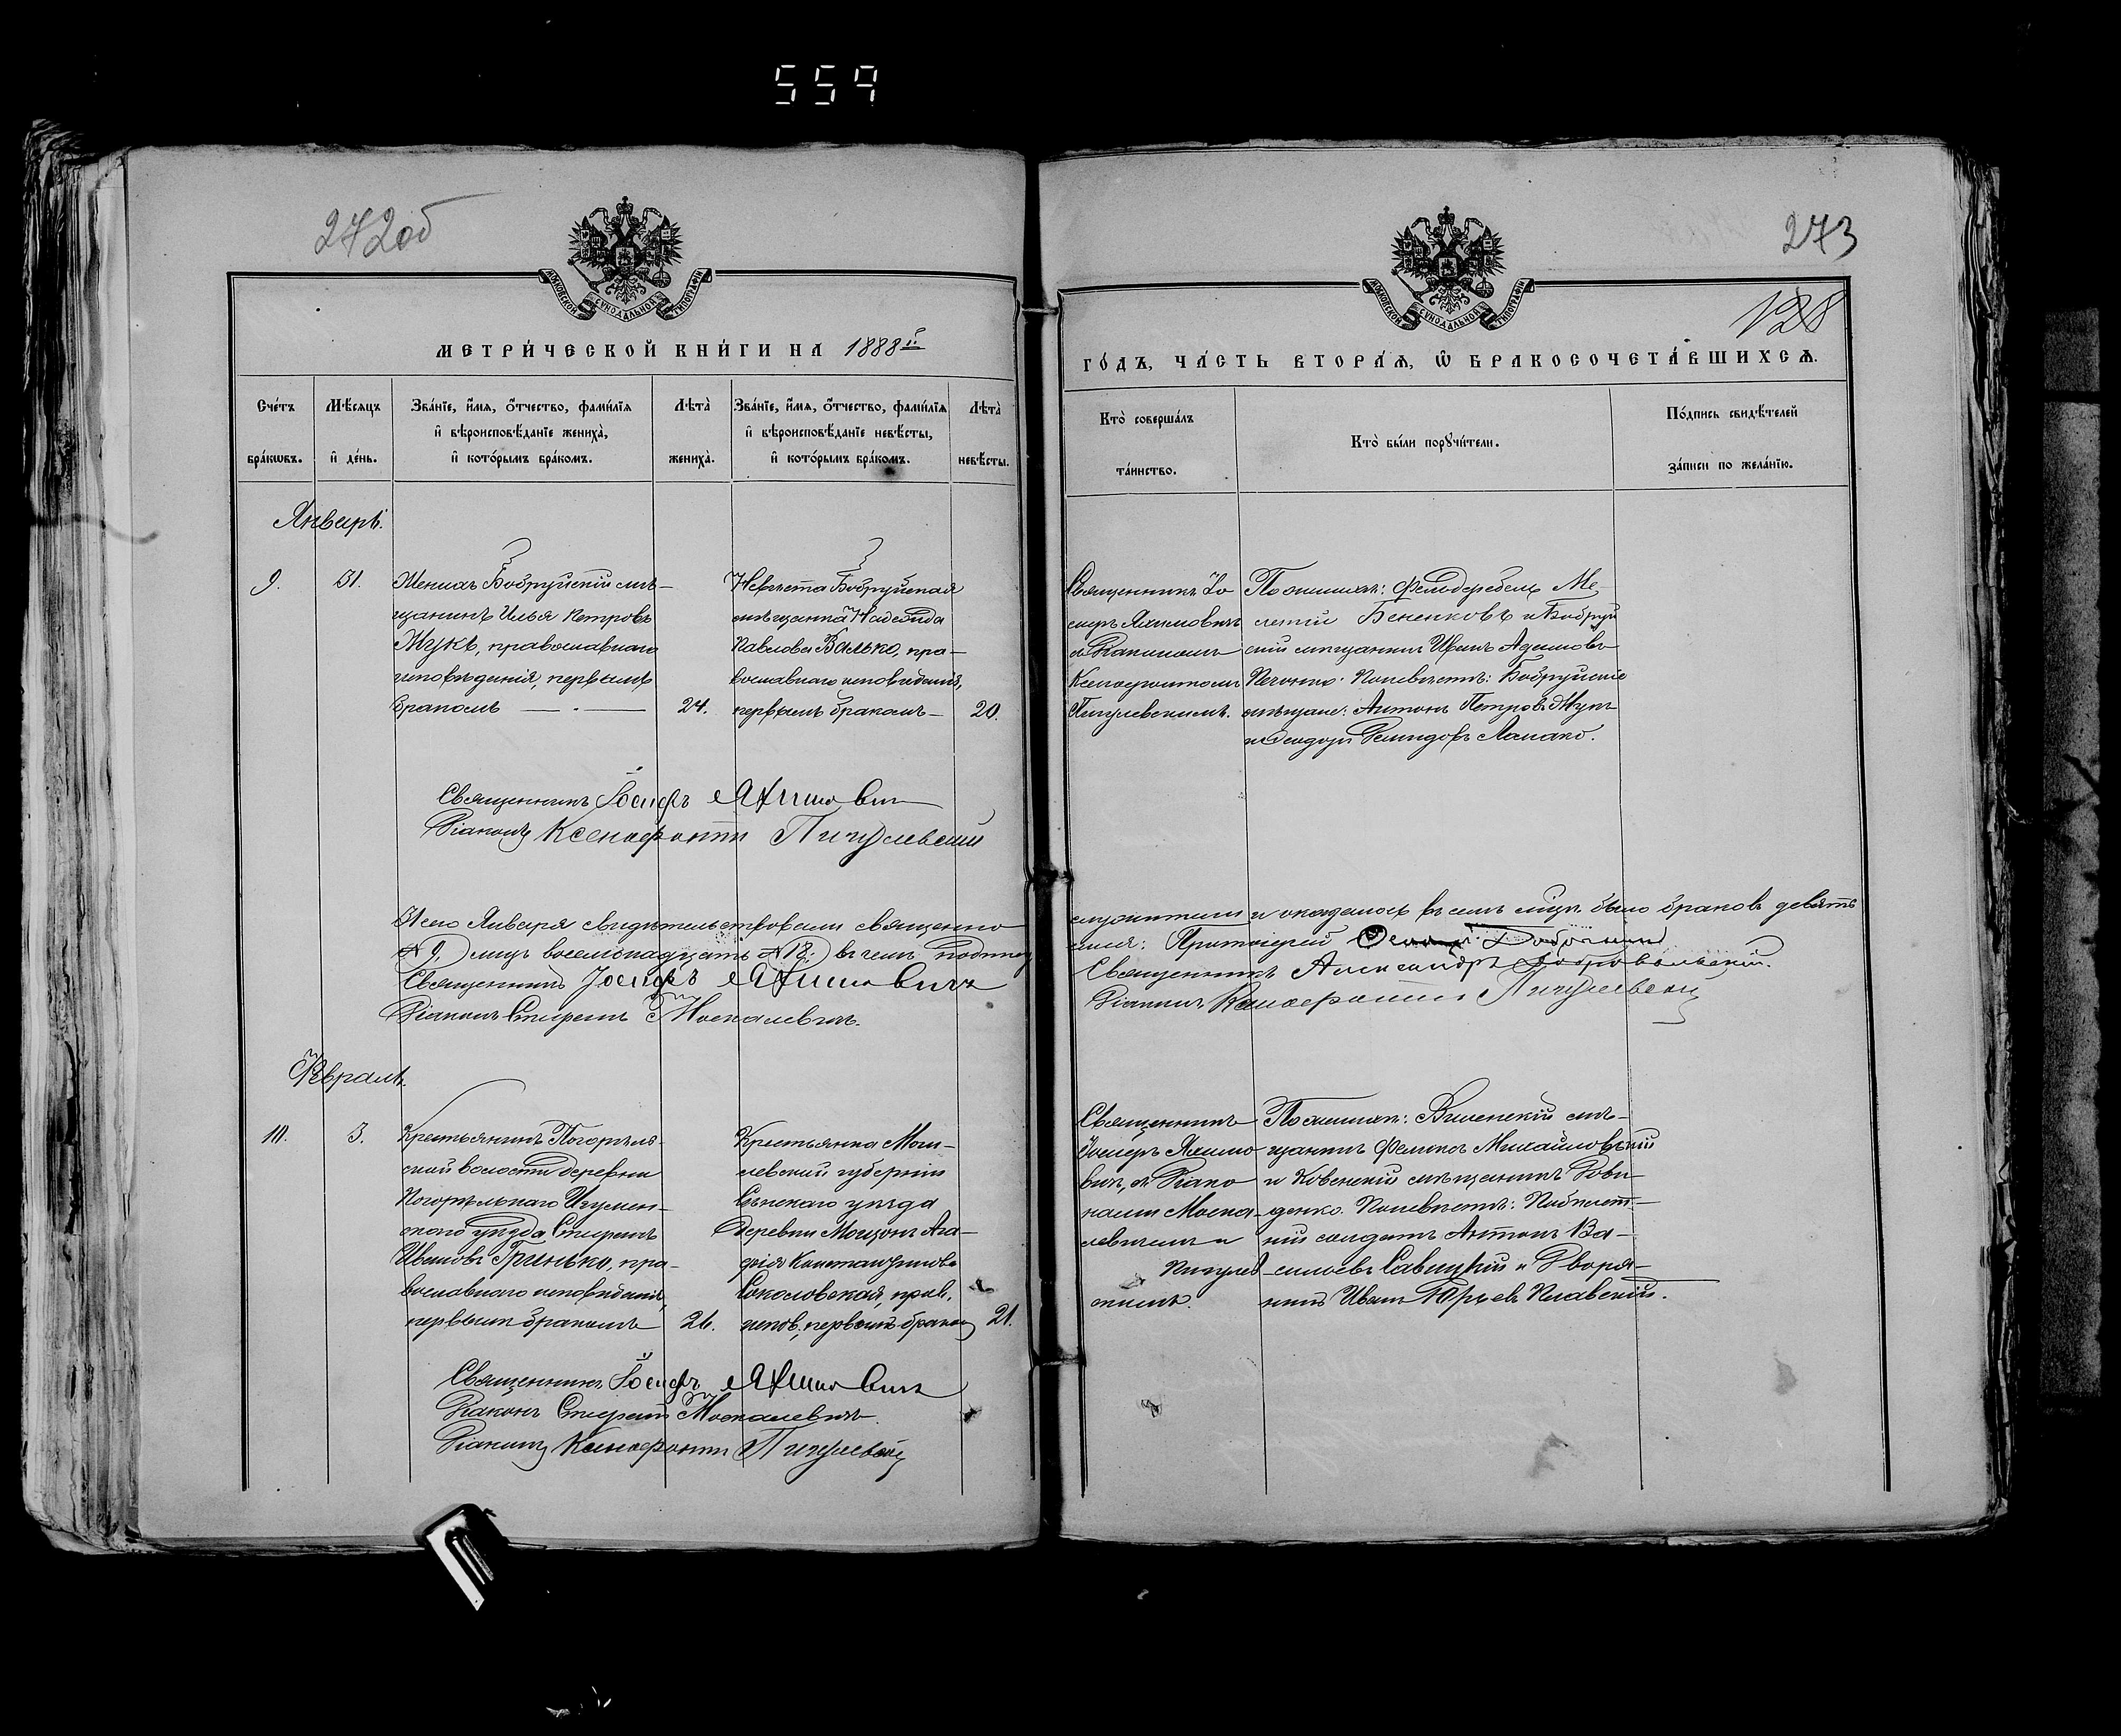 559
272об
273
128
МОСКОВСКОЙ СѴНОДАЛЬНОЙ ТИПОГРАФІИ
МОСКОВСКОЙ СѴНОДАЛЬНОЙ ТИПОГРАФІИ
МЕТРИ́ЧЕСКОЙ КНИ́ГИ НА 1888 г.
ГО́ДЪ, ЧА́СТЬ ВТОРА́Ѧ, Ѿ БРАКОСОЧЕТА́ВШИХСѦ.
Сче́тъ бра́кѡвъ.
Мѣ́сяцъ и҆ де́нь.
Зва́нїе, и҆́мѧ, ѻ҆́тчество, фами́лїѧ
и҆ вѣроисповѣ́данїе жениха̀,
и҆ кото́рымъ бра́комъ.
Лѣта̀ жениха̀.
Зва́нїе, и҆́мѧ, ѻ҆́тчество, фами́лїѧ
и҆ вѣроисповѣ́данїе невѣ́сты,
и҆ кото́рымъ бра́комъ.
Лѣта̀ невѣ́сты.
Кто̀ соверша́лъ та́инство.
Кто̀ бы́ли порꙋчи́тели.
По́дпись свидѣ́телей за́писи по жела́нїю.
Январь.
9.
31.
Женихъ Бобруйскій мѣ-
щанинъ Илья Петровъ
Жукъ, православнаго
исповѣданія, первымъ
бракомъ
24.
Невѣста Бобруйская
мѣщанка Надежда
Павлова Валько, пра-
вославнаго исповѣданія,
первымъ бракомъ
20.
Священникъ Іо
сифъ Яхимовичъ
съ Діакономъ
Ксенофонтомъ
Пигулевскимъ.
По женихѣ: Фельдфебель
Бененковъ и Бобруй
скій мѣщанинъ Адамовъ
По невѣстѣ: Бобруйскіе
мѣщане: Антонъ Петровъ Жукъ
и Ѳеодоръ
Священникъ Іосифъ Яхимович
Діаконъ Ксенофонтъ Пигулевскій
31 сего Января свидѣтельствовали священно
служители и оказалось въ семъ мѣс. было браковъ девять
№ 9, лицъ восемнадцать № 18; въ чемъ подпису
емся: Протоіерей
Священникъ Іосифъ Яхимовичъ
Священникъ Александръ Добровольскій.
Діаконъ Москалевичъ.
Діаконъ Ксенофонтъ Пигулевскій
Февраль.
10.
3.
Крестьянинъ Погорѣль-
ской волости деревни
Погорѣльнаго Игумен-
скаго уѣзда
Ивановъ Гринько, пра-
вославнаго исповѣданія,
первымъ бракомъ
26.
Крестьянка Моги-
левской губерніи
Сѣнскаго уѣзда
деревни Ага-
фія Константинова
Соколовская, прав.
испов., первымъ браком
21.
Священникъ
Іосифъ Яхимо
вичъ, съ Діако
нами Моска-
левичемъ и
Пигулев
скимъ.
По женихѣ: Виленскій мѣ-
щанинъ Феликсъ Михайловскій
и Ковенскій мѣщанинъ
По невѣстѣ:
солдатъ Антонъ Ва-
сильевъ Савицкій и Дворя-
нинъ Иванъ Юрьевъ
Священникъ Іосифъ Яхимовичъ
Діаконъ Москалевичъ
Діаконъ Ксенофонтъ Пигулевскій